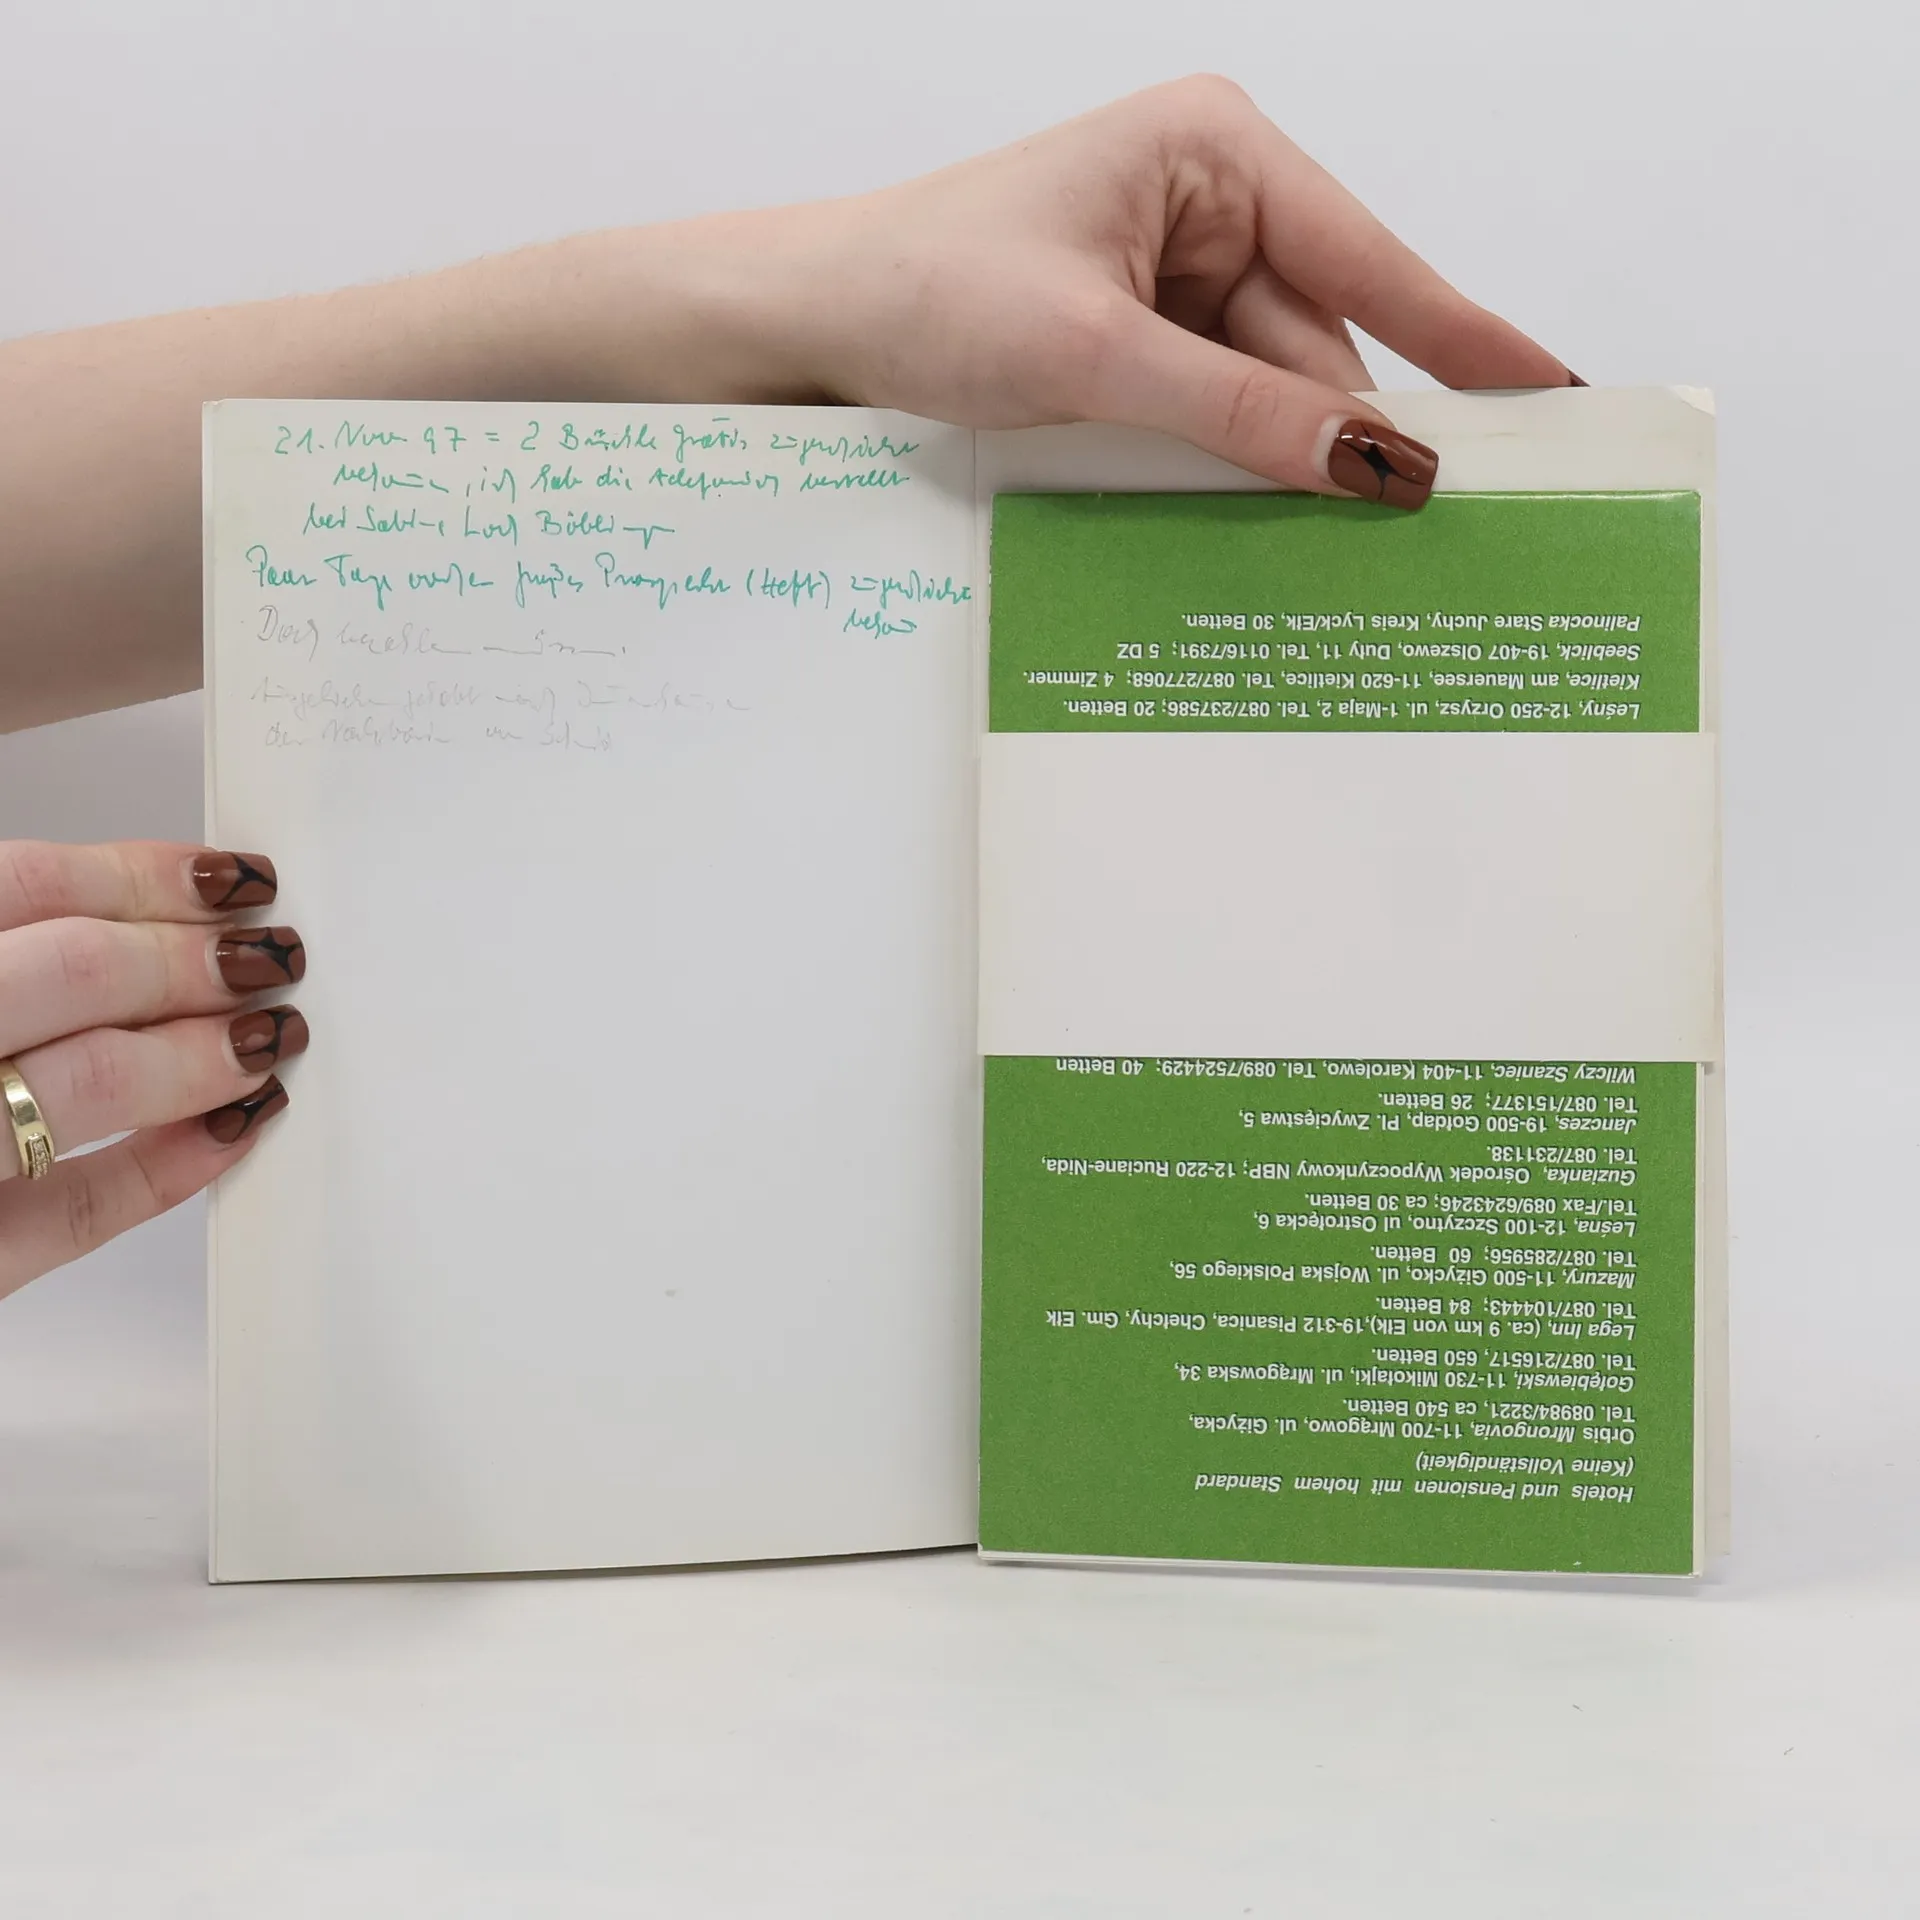 21. Nov 97 = 2 Büchle gratis zugeschickt
bekommen, ich hab die telefonisch bestellt
bei Sabine Loch Böblingen
Paar Tage vorher großes Prospekt (Heft) zugeschickt
bekommen
Doch bezahlen müssen.
der Nachbarin
Hotels und Pensionen mit hohem Standard
(Keine Vollständigkeit)
Orbis Mrongovia, 11-700 Mrągowo, ul. Giżycka,
Tel. 08984/3221, ca 540 Betten.
Gołębiewski, 11-730 Mikołajki, ul. Mrągowska 34,
Tel. 087/216517, 650 Betten.
Lega Inn, (ca. 9 km von Ełk),19-312 Pisanica, Chełchy, Gm. Ełk
Tel. 087/104443; 84 Betten.
Mazury, 11-500 Giżycko, ul. Wojska Polskiego 56,
Tel. 087/285956; 60 Betten.
Leśna, 12-100 Szczytno, ul Ostrołęcka 6,
Tel./Fax 089/6243246; ca 30 Betten.
Guzianka, Ośrodek Wypoczynkowy NBP; 12-220 Ruciane-Nida,
Tel. 087/231138.
Janczes, 19-500 Gołdap, Pl. Zwycięstwa 5,
Tel. 087/151377; 26 Betten.
Wilczy Szaniec, 11-404 Karolewo, Tel. 089/7524429; 40 Betten
Leśny, 12-250 Orzysz, ul. 1-Maja 2, Tel. 087/237586; 20 Betten.
Kietlice, am Mauersee, 11-620 Kietlice, Tel. 087/277068; 4 Zimmer.
Seeblick, 19-407 Olszewo, Duły 11, Tel. 0116/7391; 5 DZ
Palinocka Stare Juchy, Kreis Lyck/Ełk, 30 Betten.